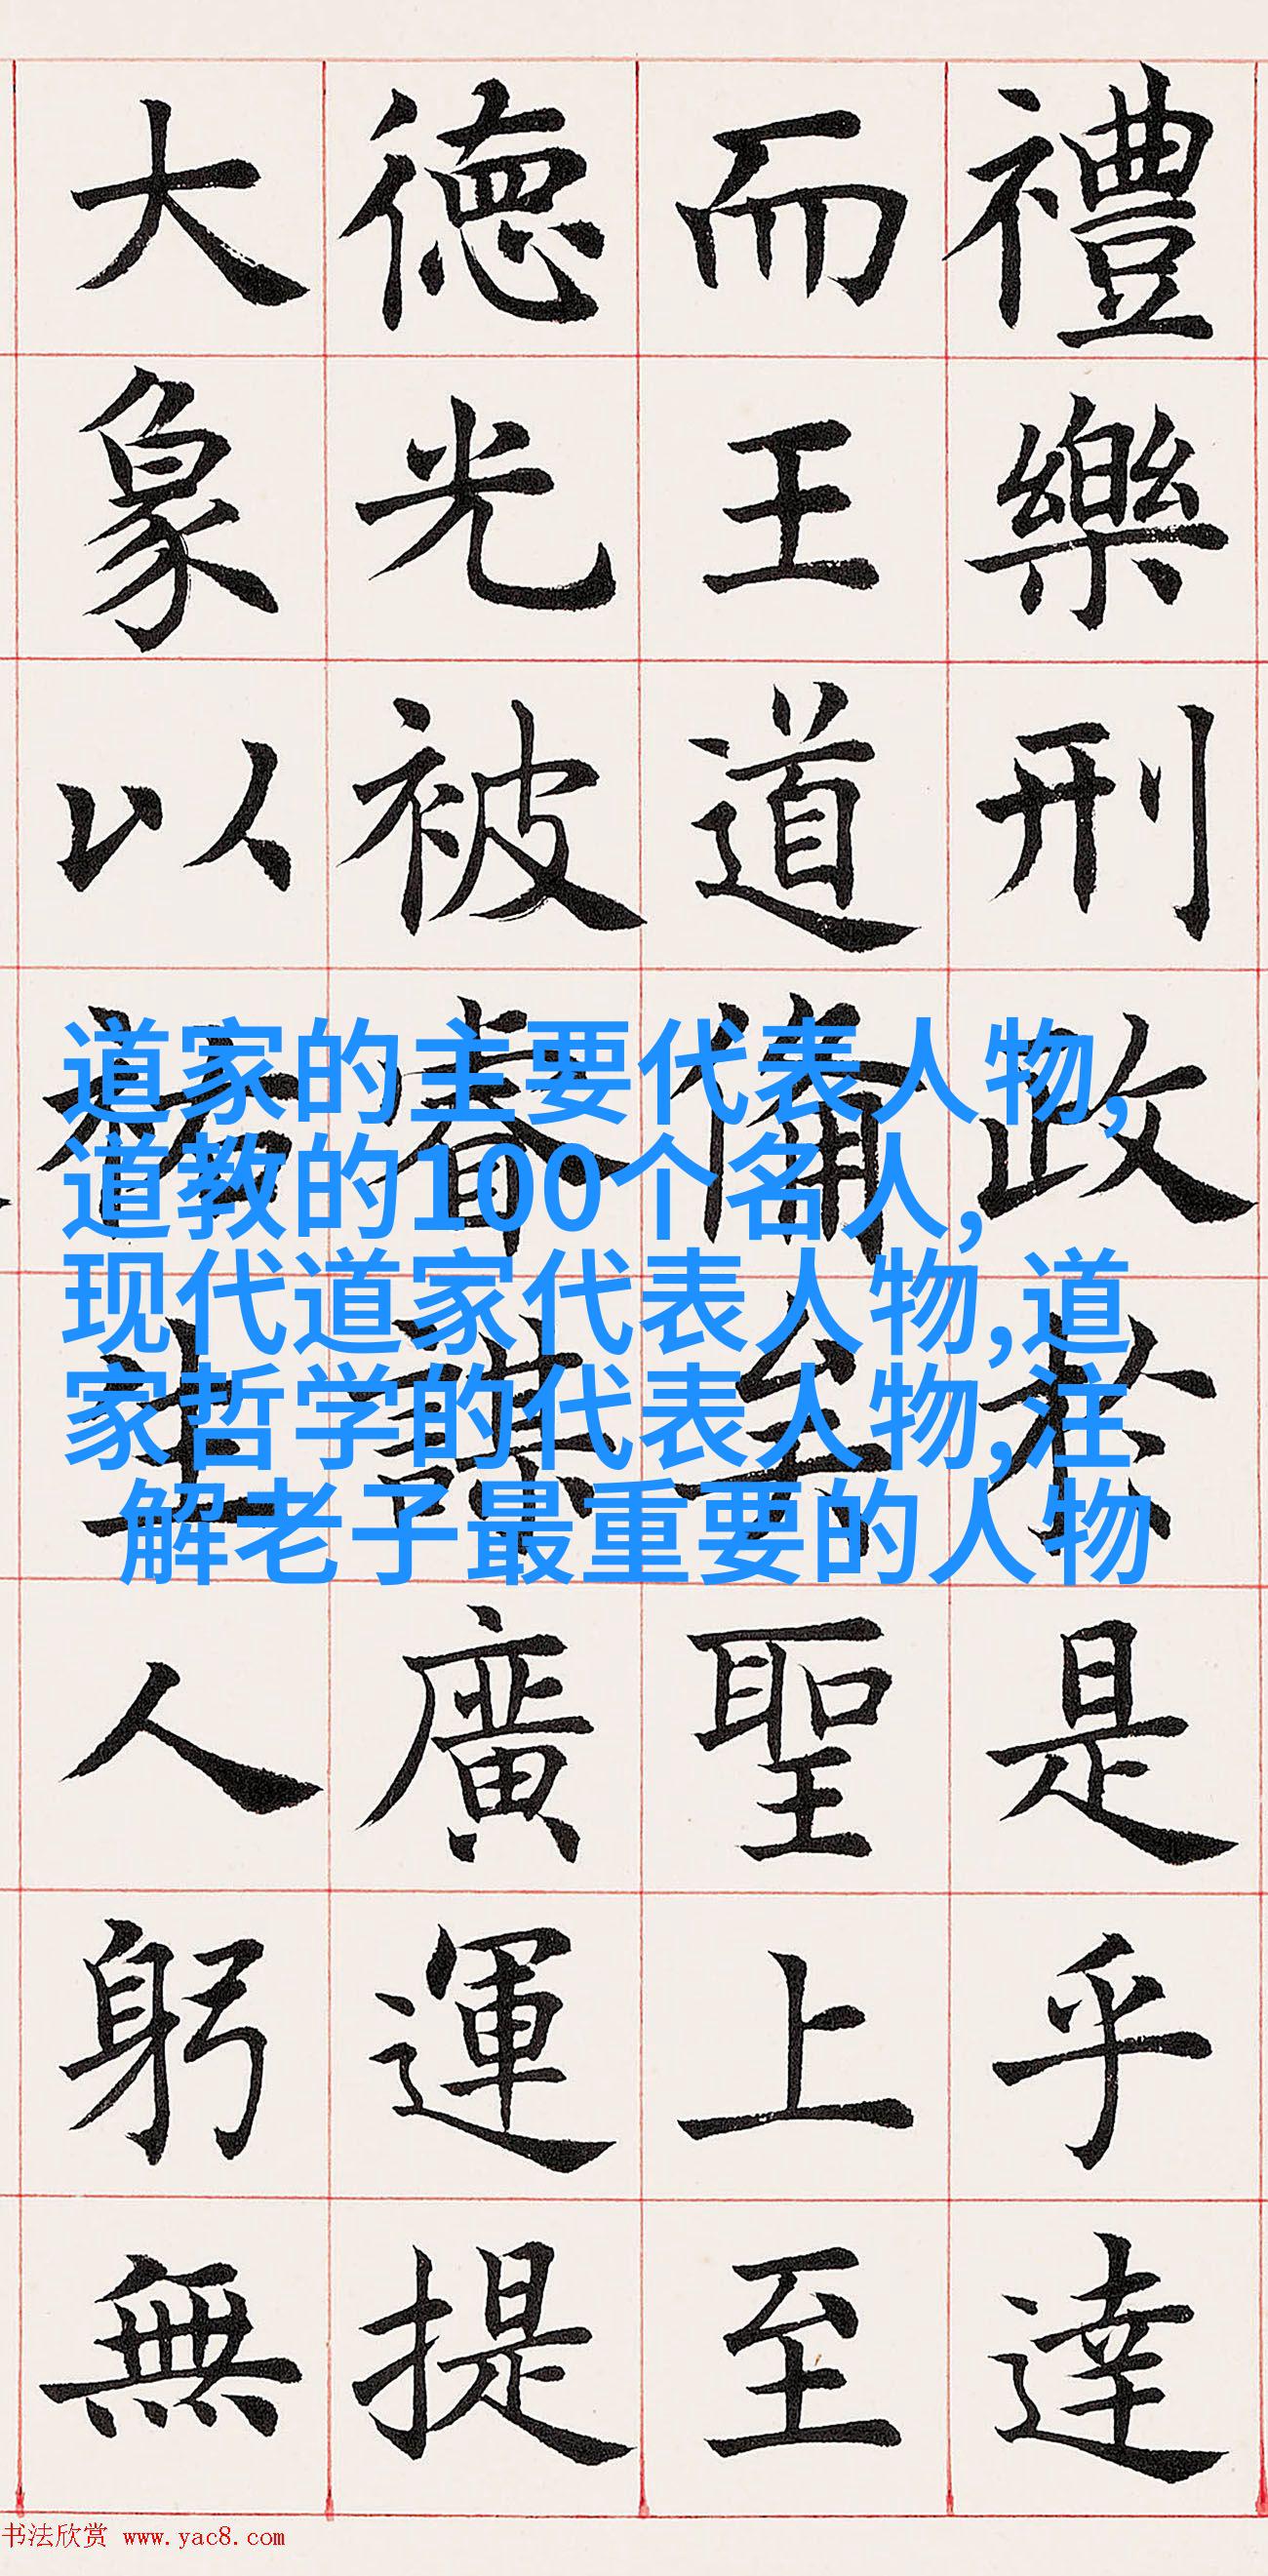 禮樂刑政於是乎達
而王道備聖上至
德光被春廣運提
大象以生人躬無
道家的主要代表人物,
道教的100个名人,
现代道家代表人物,道
家哲学的代表人物,注
解老子最重要的人物
书法欣赏 www.yac8.com